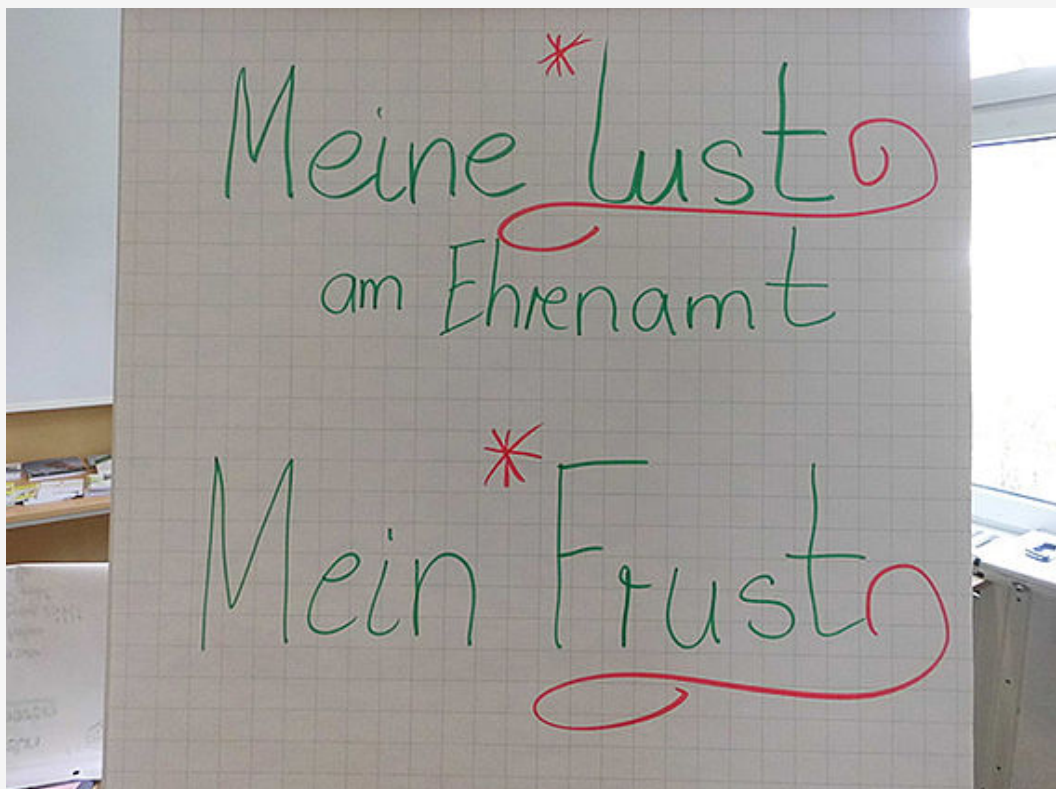 Meine Lust
am Ehrenamt
Mein Frust